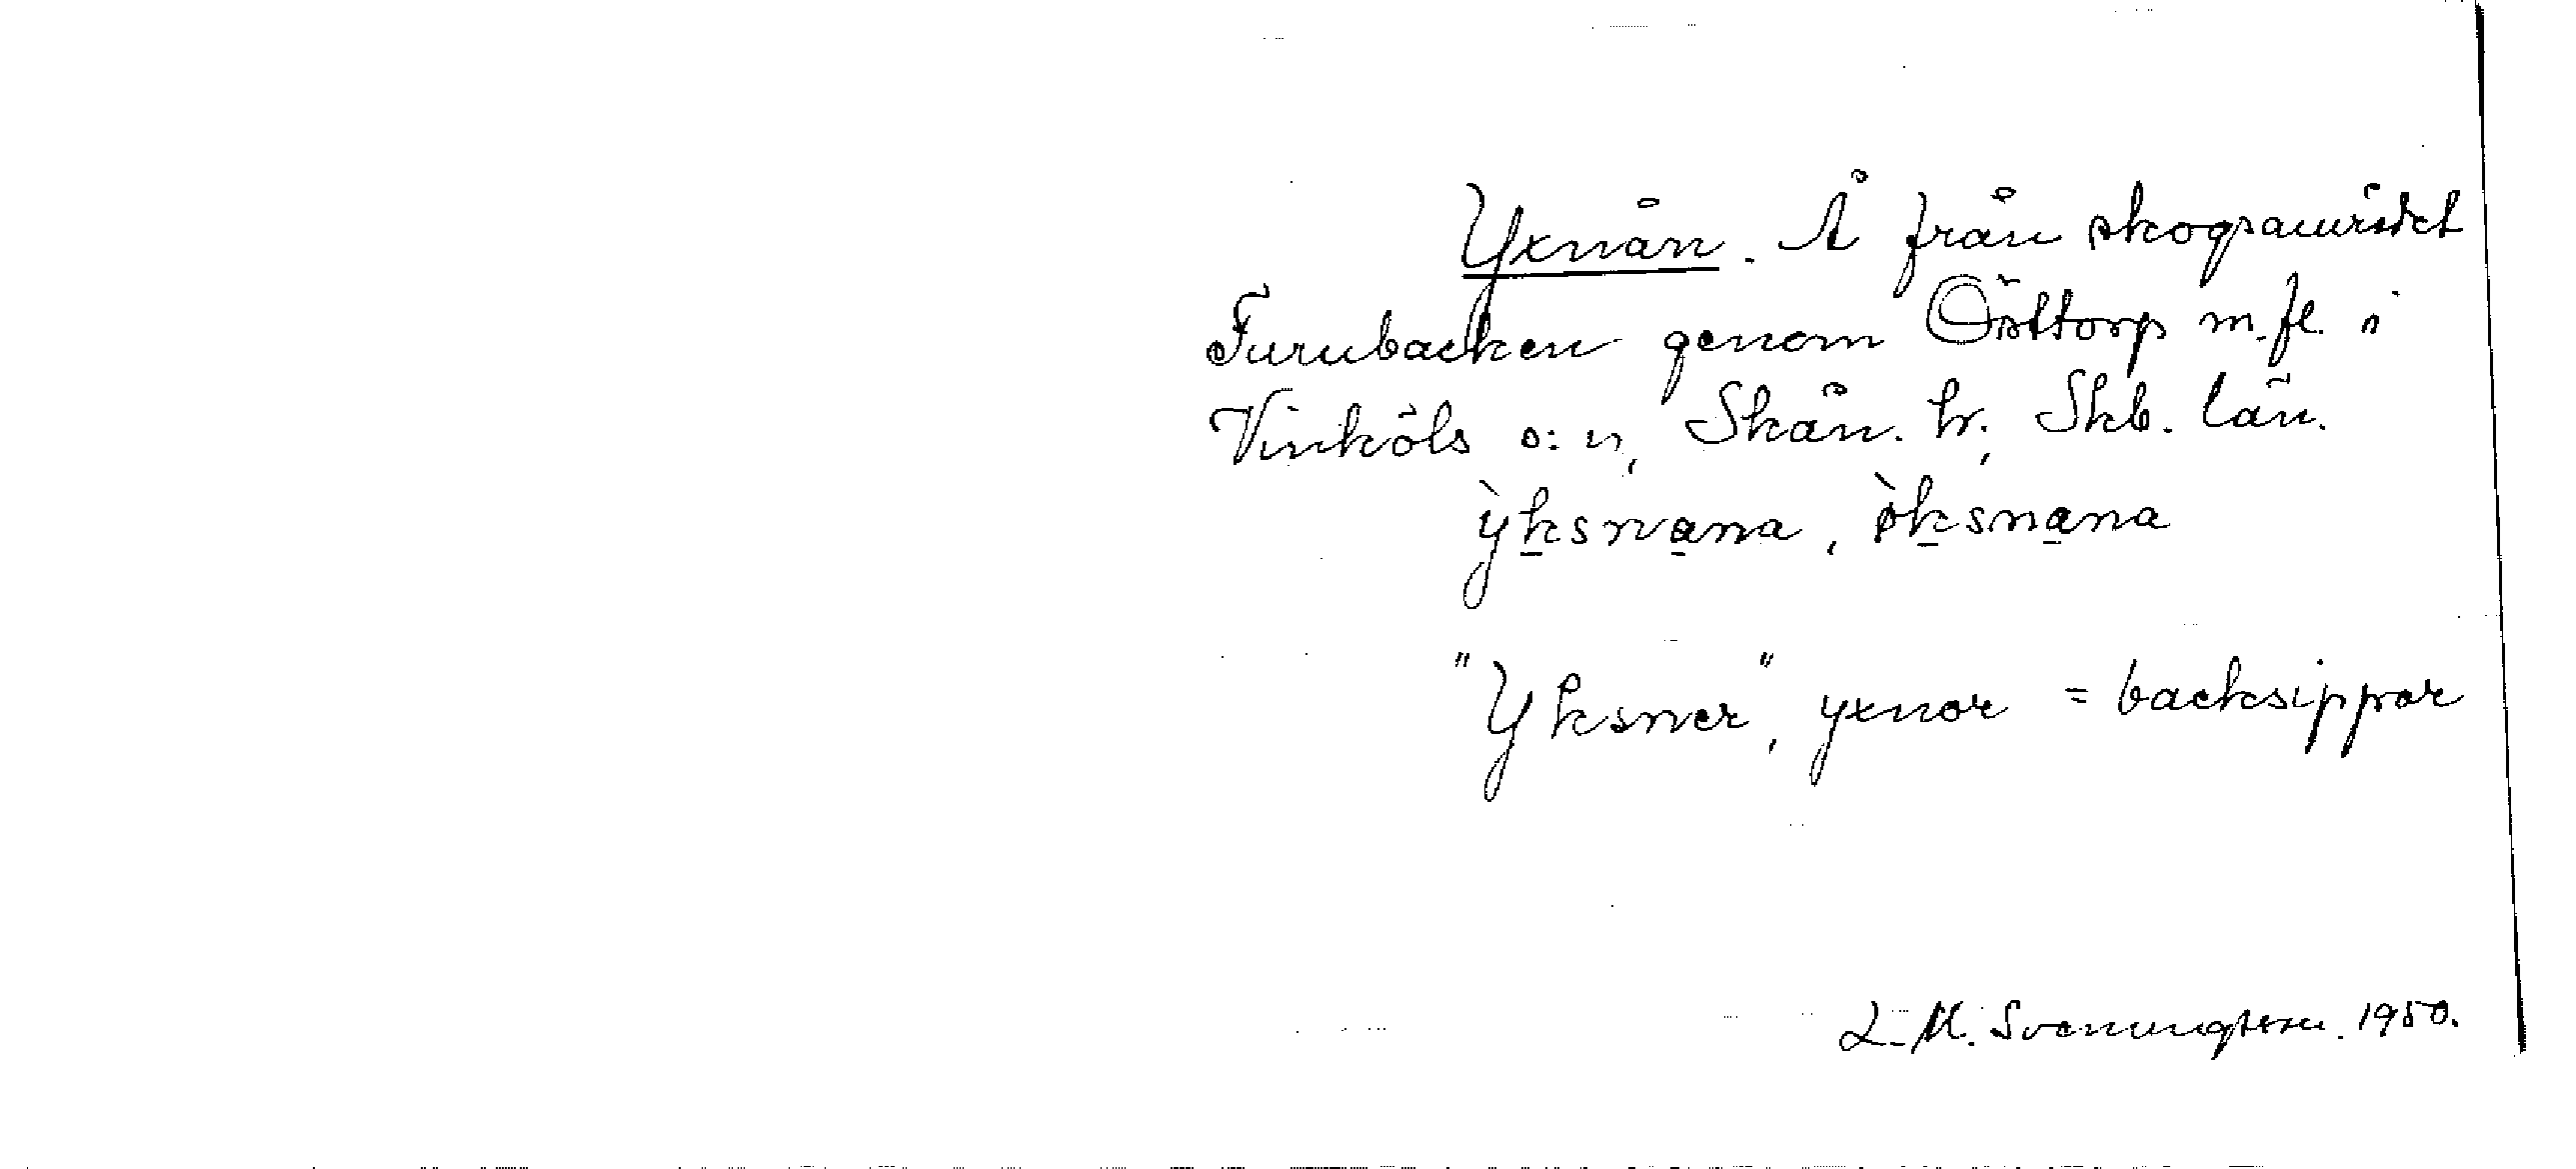 Yxnån. Å från skogsområdet
Furubacken genom Östtorp m.fl. i
Vinköls s:n, Skån. hr, Skb. län.
ỳksnana, ø̀ksnana
"Yksner", yxnor = backsippor
L.M. Svenungsson. 1950.